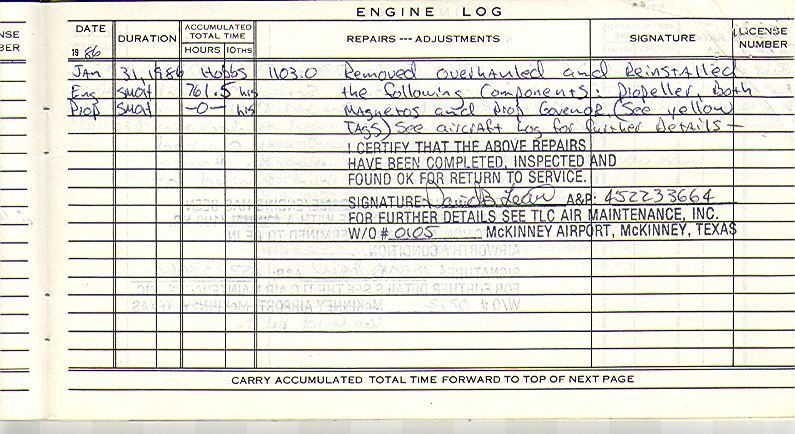 ENGINE LOG
NSE
BER
DATE
19 86
DURATION
ACCUMULATED
TOTAL TIME
HOURS 10THS
REPAIRS --- ADJUSTMENTS
SIGNATURE
LICENSE
NUMBER
Jan 31, 1986 Hobbs 1103.0 Removed overhauled and Reinstalled
Eng SMOH 761.5 hrs the following Components: Propeller, Both
Prop SMOH -0- hrs Magnetos and Prop Govenor. (See yellow
TAGS) See aircraft Log for further Details —
I CERTIFY THAT THE ABOVE REPAIRS
HAVE BEEN COMPLETED, INSPECTED AND
FOUND OK FOR RETURN TO SERVICE.
SIGNATURE: David B A&P: 452233664
FOR FURTHER DETAILS SEE TLC AIR MAINTENANCE, INC.
W/O # 0105 McKINNEY AIRPORT, McKINNEY, TEXAS
CARRY ACCUMULATED TOTAL TIME FORWARD TO TOP OF NEXT PAGE